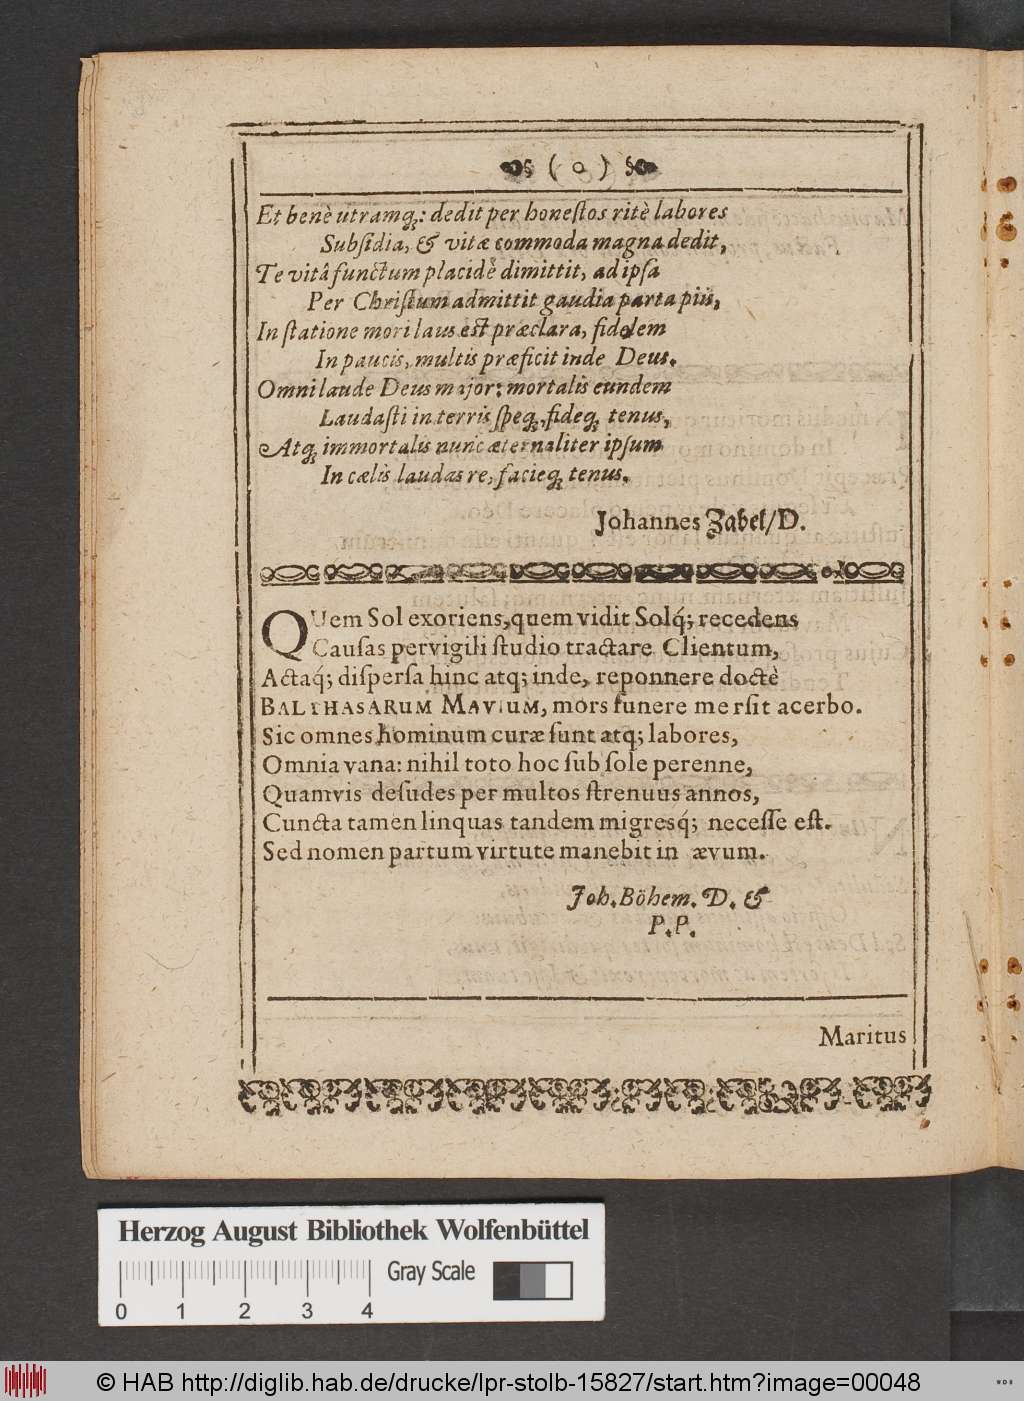 ( o )
Et benè utramq́;: dedit per honeſtos ritè labores
Subſidia, & vitæ commoda magna dedit,
Te vitâ functum placidè dimittit, ad ipſa
Per Chriſtum admittit gaudia parta piis,
In ſtatione mori laus eſt præclara, fidelem
In paucis, multis præficit inde Deus.
Omni laude Deus major: mortalis eundem
Laudaſti in terris ſpeq́;, fideq́; tenus,
Atq́; immortalis nunc æternaliter ipſum
In cælis laudas re, facieq́; tenus.
Johannes Zabel/D.
QUem Sol exoriens,quem vidit Solq́; recedens
Cauſas pervigili ſtudio tractare Clientum,
Actaq́; diſperſa hinc atq; inde, reponnere doctè
BALTHASARUM MAVIUM, mors funere merſit acerbo.
Sic omnes hominum curæ ſunt atq; labores,
Omnia vana: nihil toto hoc ſub ſole perenne,
Quamvis deſudes per multos ſtrenuus annos,
Cuncta tamen linquas tandem migresq́; neceſſe eſt.
Sed nomen partum virtute manebit in ævum.
Joh. Böhem. D. &
P. P.
Maritus
Herzog August Bibliothek Wolfenbüttel
Gray Scale
0 1 2 3 4
© HAB http://diglib.hab.de/drucke/lpr-stolb-15827/start.htm?image=00048